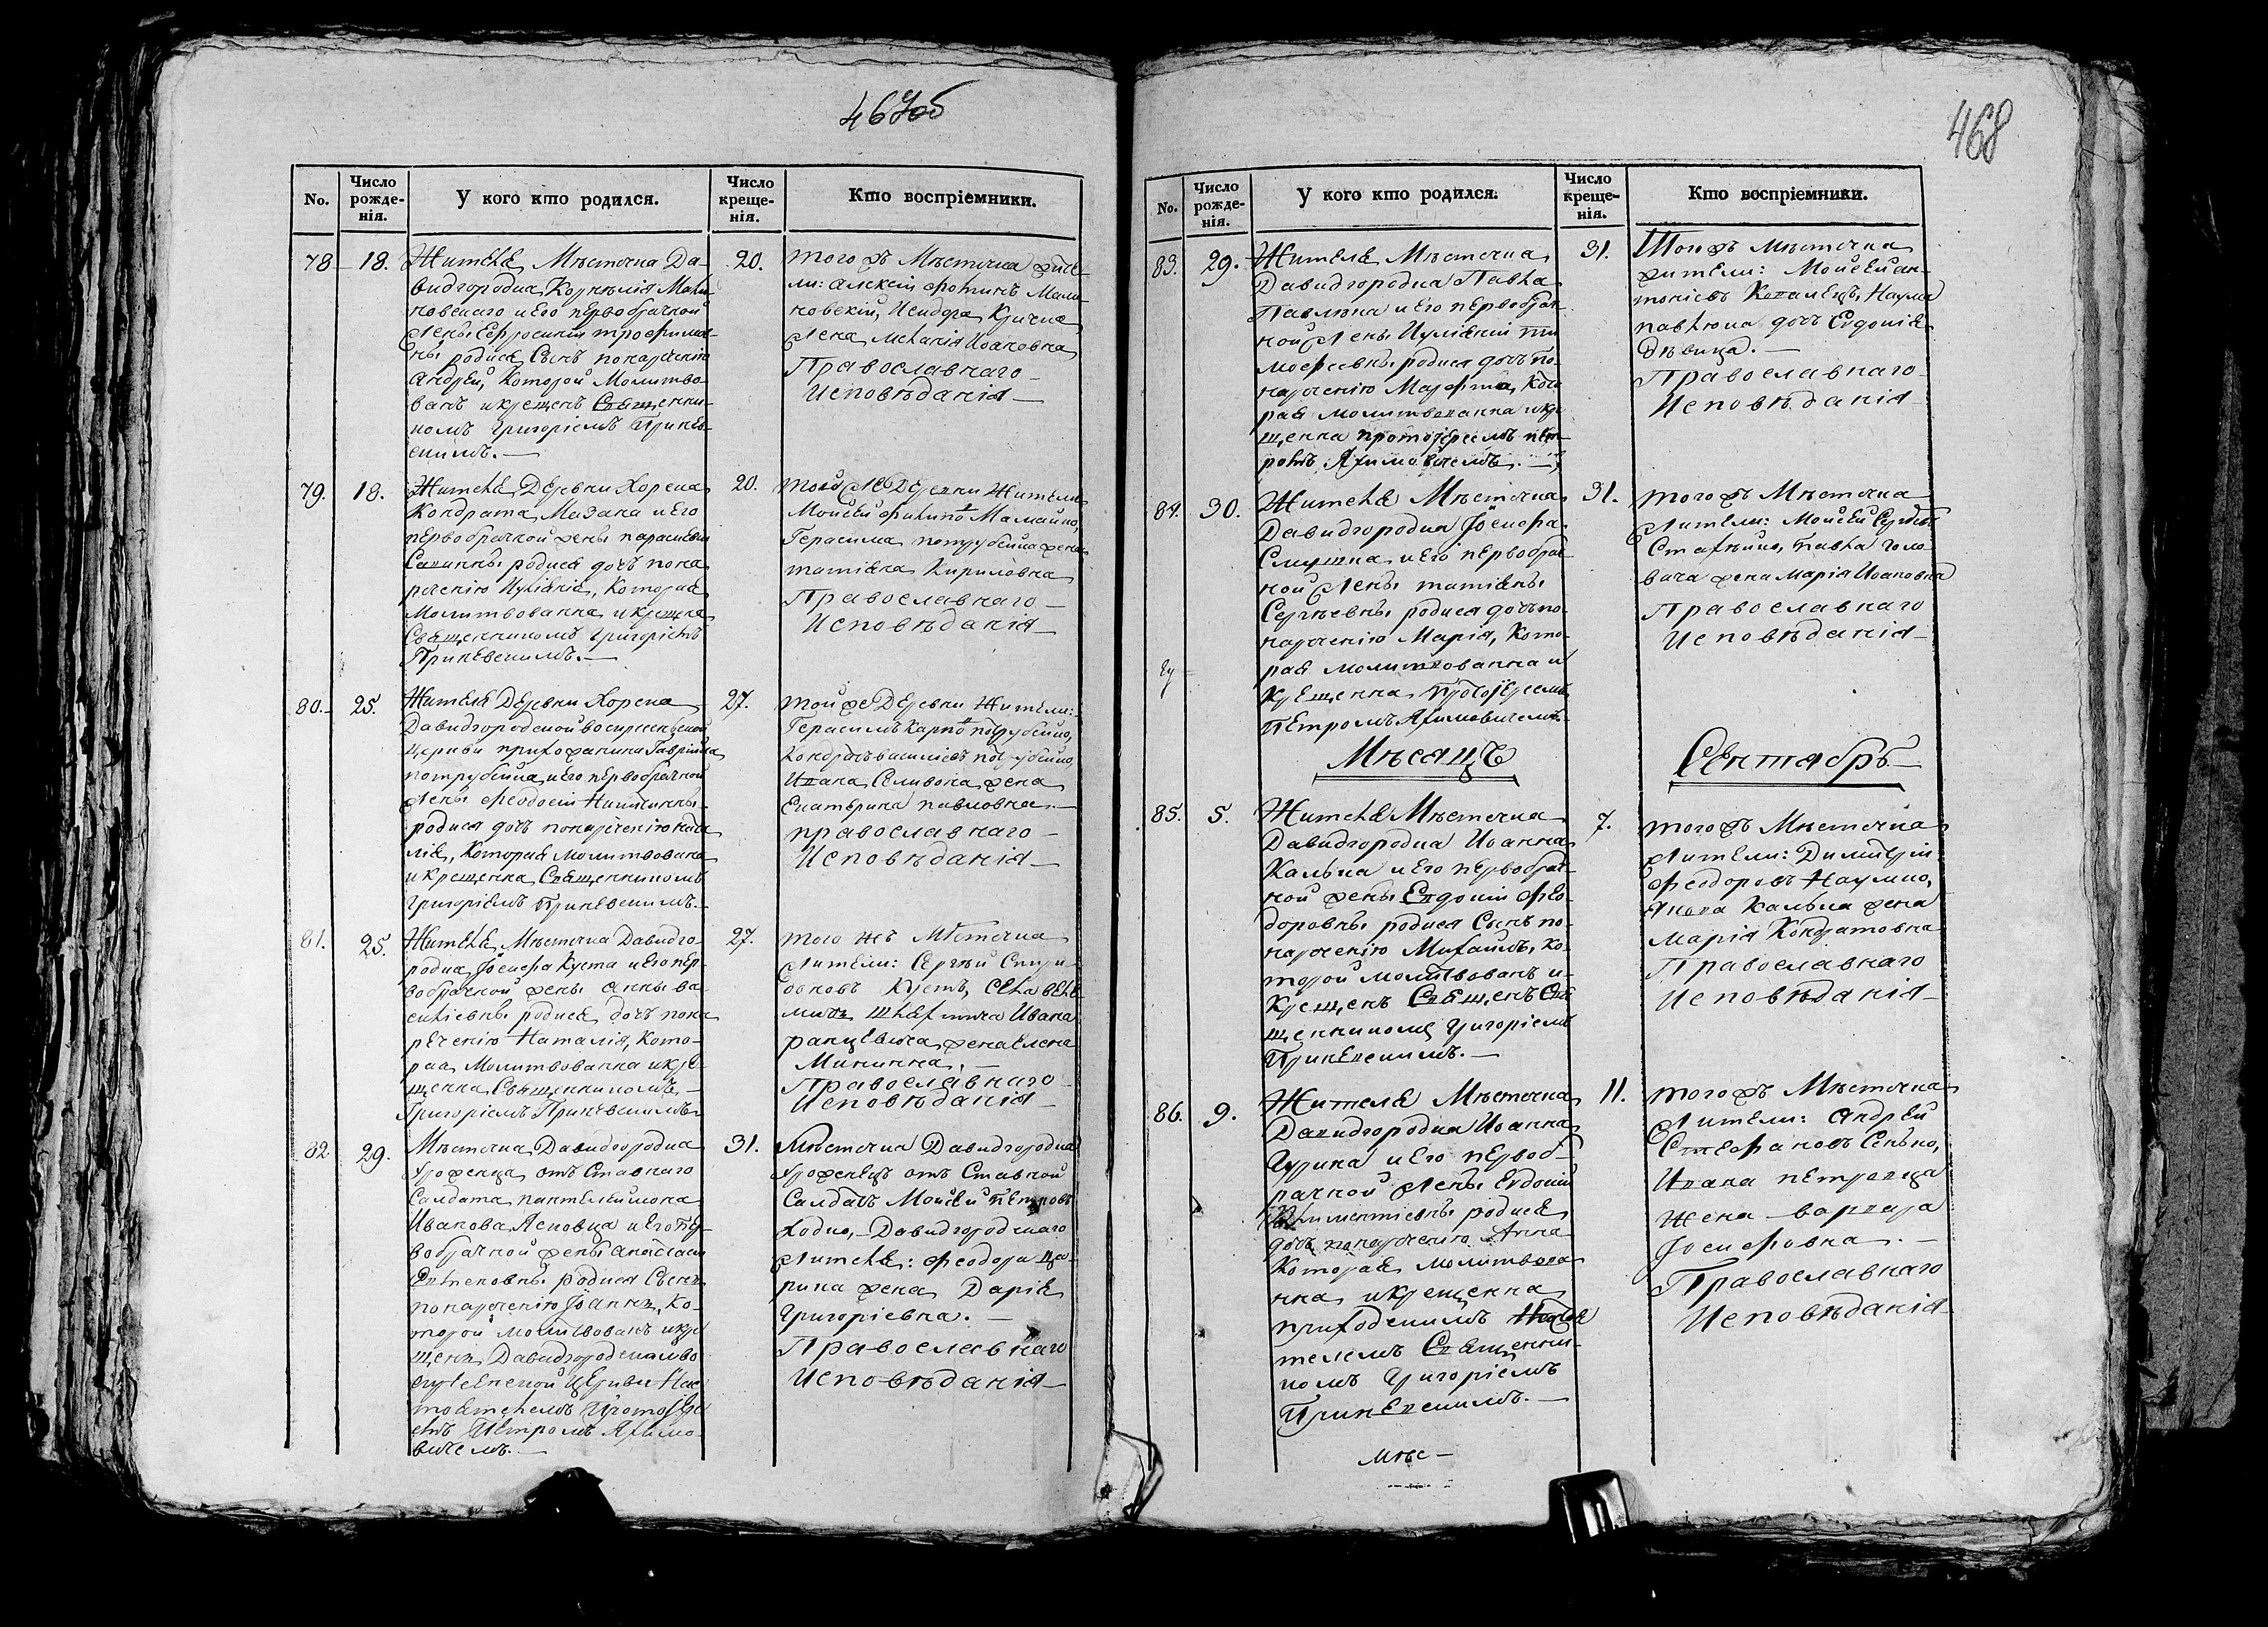 467об
No.
Число рожде-нія.
У кого кто родился.
Число креще-нія.
Кто воспріемники.
78
18.
Жителя Мѣстечка Да-
видгородка Корнѣлія Мали
новскаго и его первобрачной
жены Ефросиніи трофимов-
ны родися Сынъ понареченію
андрей, Которой Молитво-
ванъ икрещенъ Священни-
комъ Григоріемъ Прине-
скимъ.
20.
того жъ Мѣстечка жите-
ли: алексій фотинъ Мали
новскій, Исидора Кричка
жена меланія Иоановна
Православнаго
Исповѣданія
79.
18.
Жителя Деревни Хорска
Кондрата Мазана и его
первобрачной жены параскевіи
Савинны родися дочь пона
реченію Иуліанія, Которая
Молитвованна и крещена
Священникомъ Григоріемъ
20.
той же Деревни Жители
Моисей филипо Мамайко,
Герасима потрубейка жена
татіана Кириловна
Православнаго
Исповѣданія
80.
25.
Жителя Деревни Хорска
Давидгородской воскресенской
Церкви прихожанина Гавріила
потрубейка, и его первобрачной
жены феодосіи Никитинны
родися дочь понареченію ната
лія, Которая молитвована
и крещенна Священникомъ
27.
той же Деревни Жители:
Герасимъ Карпо потрубейко,
Кондратъ василіевъ потрубейко,
Ивана Селивона жена
Екатерина павловна.
православнаго
Исповѣданія
81.
25.
Жителя Мѣстечка Давидго-
родка Іосифа Куста и его пер-
вобрачной жены анны ва-
силіевны родися дочь пона
реченію Наталія, Кото-
рая Молитвованна и кре-
щенна Священникомъ
27.
того жъ Мѣстечка
жители: Сергѣй Спири-
доновъ Кустъ,
Ивана
ранцевича жена Елена
Минична.
Православнаго
Исповѣданія
82
29.
Мѣстечка Давидгородка
уроженца отъ Ставнаго
Салдата пантелеимона
Иванова Ясковца и его пер-
вобрачной жены анастасіи
родися Сынъ
понареченію Іоаннъ, Ко-
торой молитвованъ и кре
щенъ Давидгородскимъ во
скресенской Церкви Нас
тоятелемъ Протоіере
емъ Петромъ Якимо-
вичемъ.
31.
Мѣстечка Давидгородка
уроженецъ отъ Ставной
Салдатъ Моисей петровъ
Ходко, Давидгородскаго
жителя: феодора ца-
рика жена Дарія
Григоріевна.
Православнаго
Исповѣданія
468
No.
Число рожде-нія.
У кого кто родился.
Число креще-нія.
Кто воспріемники.
83.
29.
Жителя Мѣстечка
Давидгородка Павла
Павлюка и его первобрач-
ной жены Иуліаніи ти
мофеевны родися дочь по-
нареченію Марфта, Кото
рая молитвованна и кре
щенна протоіереемъ пет-
ромъ Якимовичемъ.
31.
Того жъ Мѣстечка
жители: Моисей ан-
тоніевъ Копанецъ, Наума
павлюка дочь Евдокія
дѣвица.
Православнаго
Исповѣданія
84.
30.
Жителя Мѣстечка
Давидгородка Іосифа
и его первобрач
ной жены татіаны
Сергѣевны родися дочь по-
нареченію Марія, Кото-
рая молитвованна и
Крещенна Протоіереемъ
Петромъ Якимовичемъ.
31.
того жъ Мѣстечка
жители: Моисей
павла голо-
вача жена Марія Иоановна
Православнаго
Исповѣданія
Мѣсяцъ
Сентабръ
85.
5.
Жителя Мѣстечка
Давидгородка Иоанна
Кальки и его первобрач-
ной жены Евдокіи фео-
доровны родися Сынъ по-
нареченію Михаилъ, ко-
торой молитвованъ и
Крещенъ Священъ Свя
щенникомъ Григоріемъ
7.
того жъ Мѣстечка
жители: Димитрій
феодоровъ Наумко,
Якова Калька жена
Марія Кондратовна
Православнаго
Исповѣданія
86.
9.
Жителя Мѣстечка
Давидгородка Иоанна
Гурина и его первоб-
рачной жены Евдокіи
Климентіевны родися
дочь понареченію Анна
Которая молитвова
нна икрещенна
приходскимъ
телемъ Священни-
комъ Григоріемъ
11.
того жъ Мѣстечка
жители: андрей
Стефановъ Сенько,
Ивана петровца
жена варвара
Іосифовна.
Православнаго
Исповѣданія
Мѣс